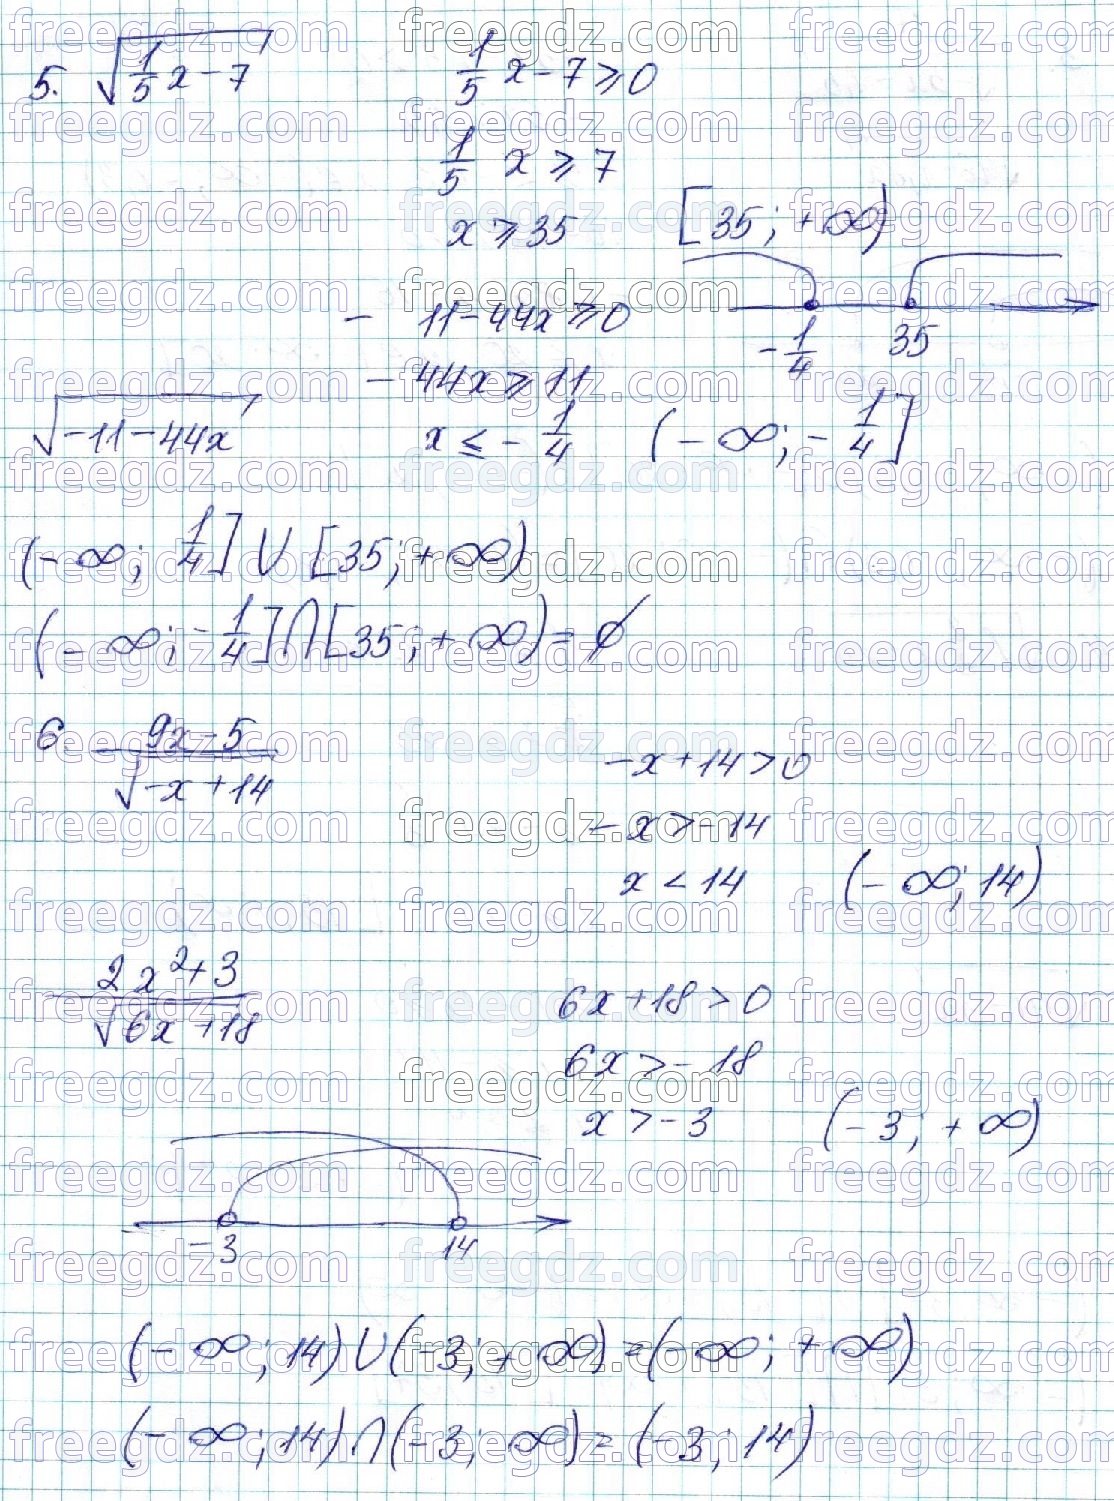 5. √(1/5 x - 7) 1/5 x - 7 ⩾ 0
1/5 x ⩾ 7
x ⩾ 35 [35; +∞)
-1/4 35
- 11 - 44x ⩾ 0
- 44x ⩾ 11
√(-11 - 44x) x ≤ - 1/4 (-∞; - 1/4]
(-∞; 1/4] ∪ [35; +∞)
(-∞; -1/4] ∩ [35; +∞) = ∅
6. (9x - 5)/√(-x + 14) -x + 14 > 0
-x > -14
x < 14 (-∞; 14)
(2x² + 3)/√(6x + 18) 6x + 18 > 0
6x > -18
x > -3 (-3; +∞)
-3 14
(-∞; 14) ∪ (-3; +∞) = (-∞; +∞)
(-∞; 14) ∩ (-3; ∞) = (-3; 14)
freegdz.com